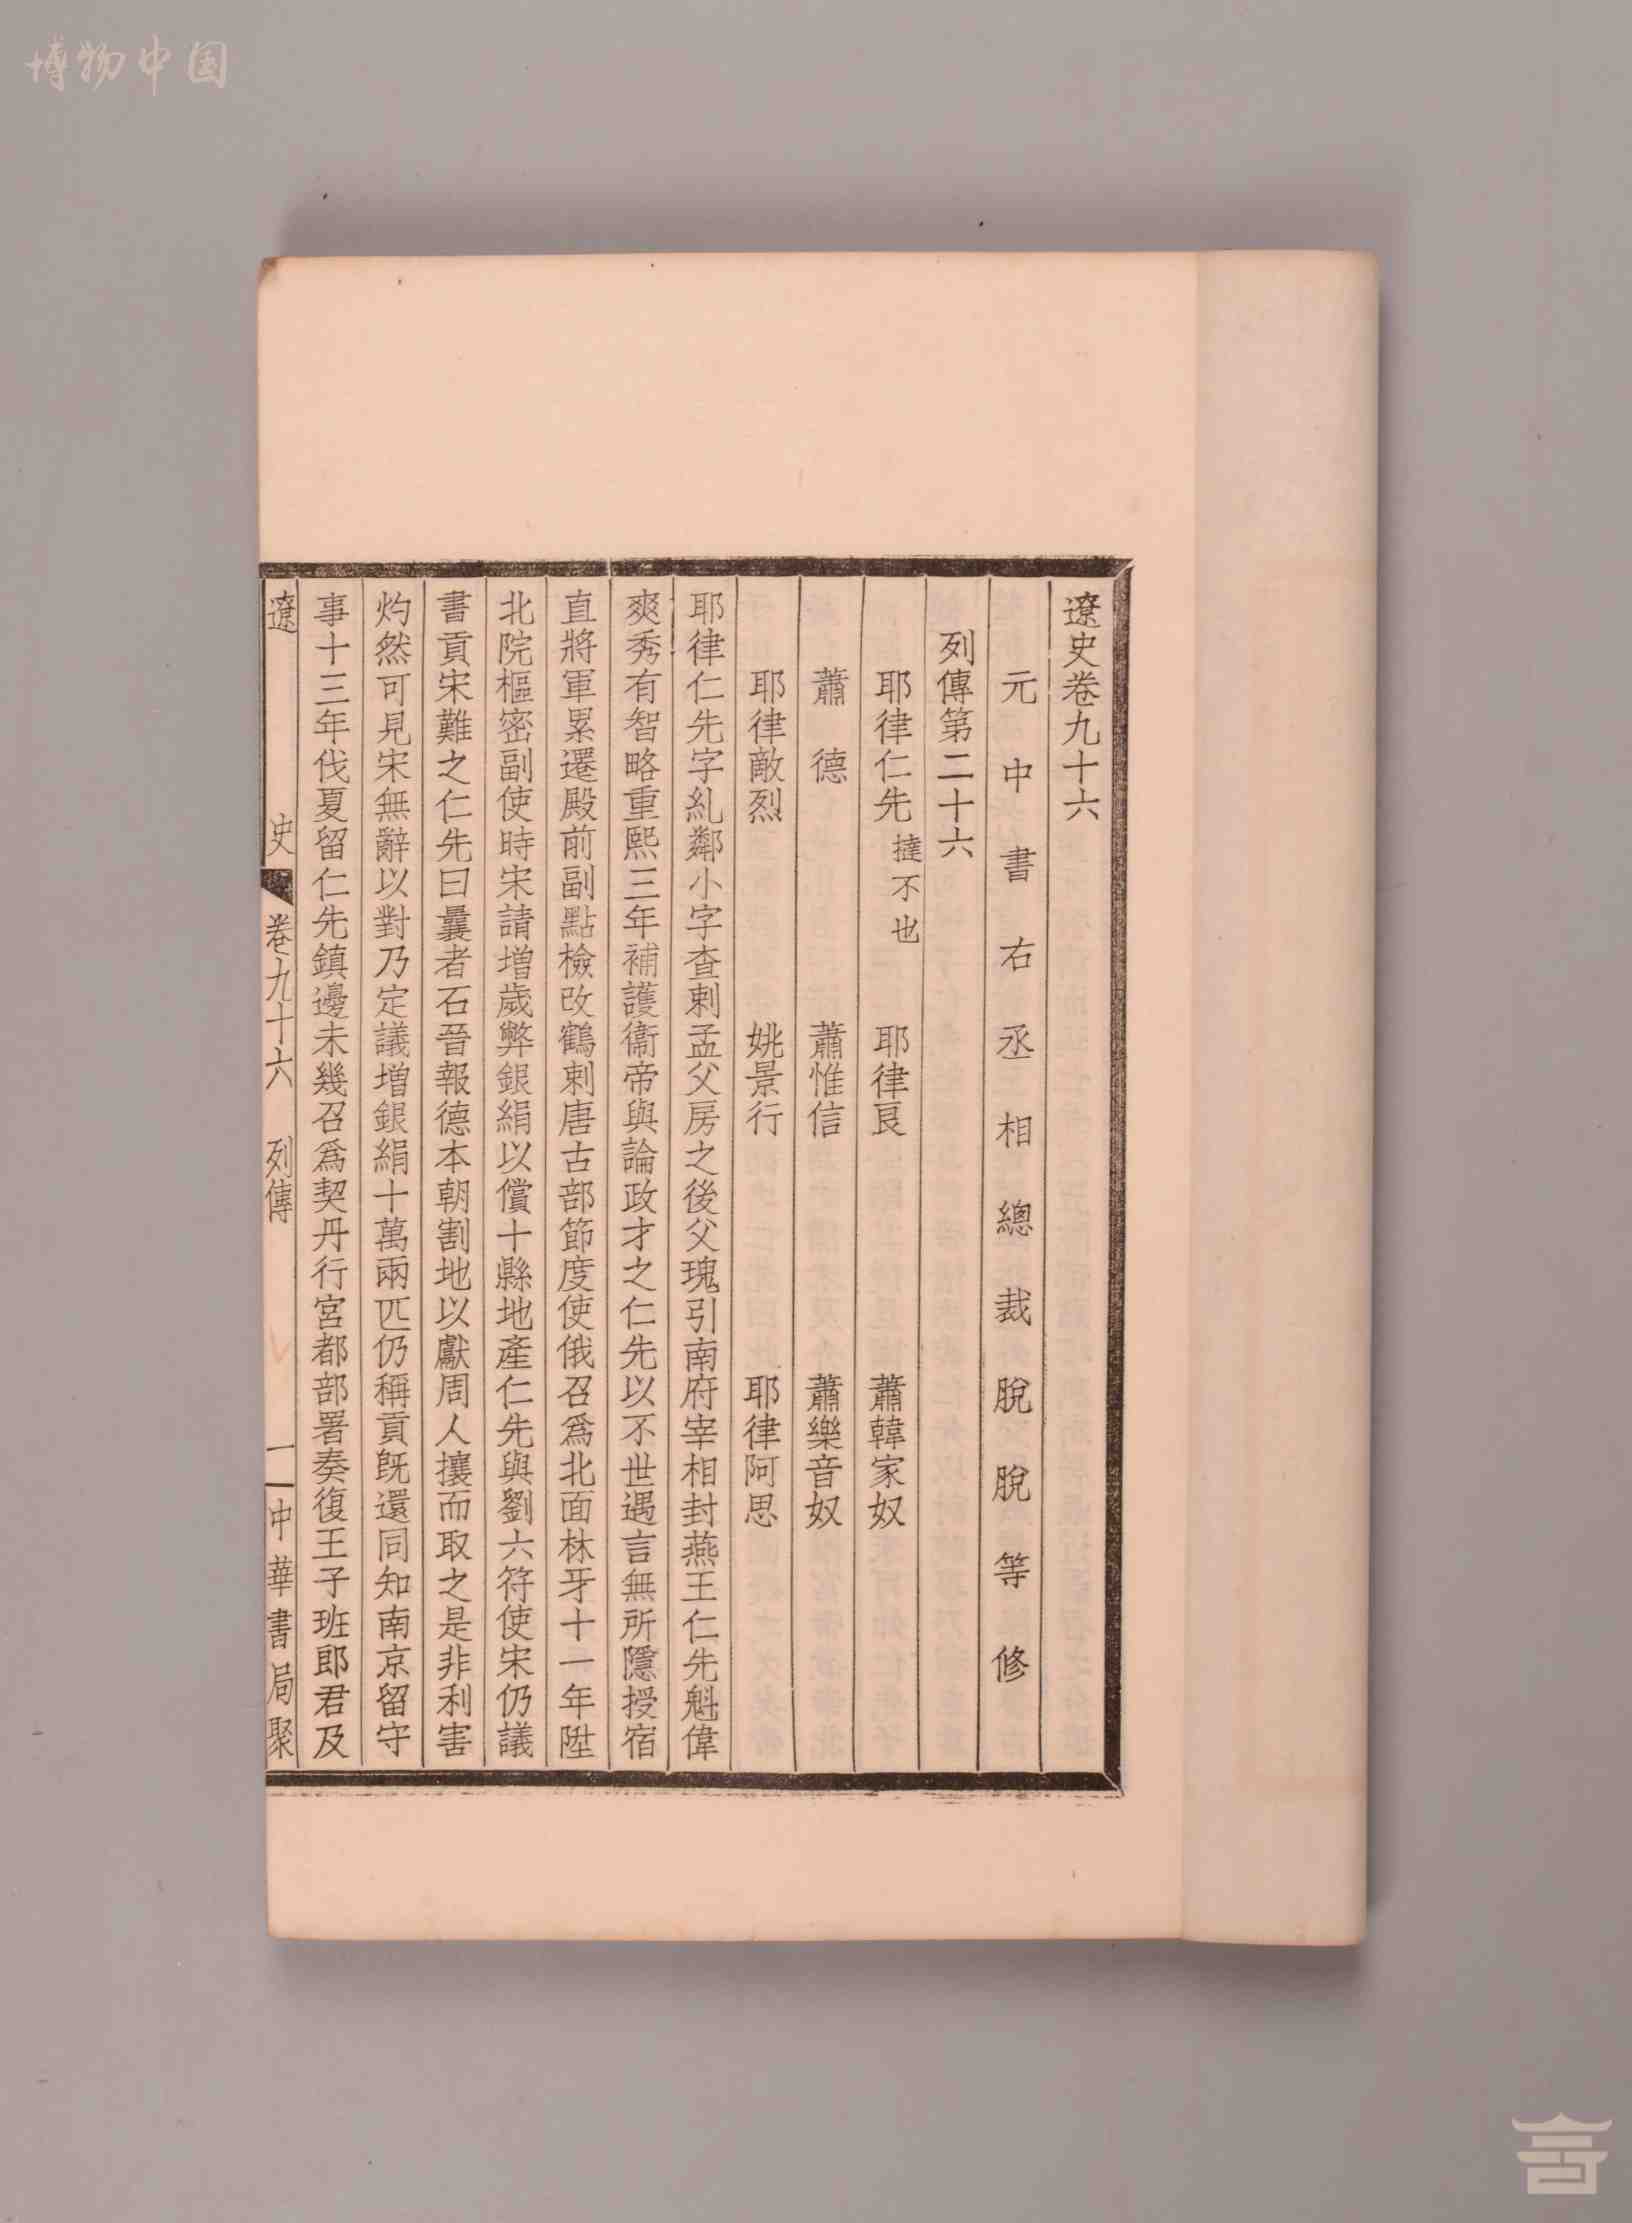 博物中国
遼史卷九十六
元中書右丞相總裁脫脫等修
列傳第二十六
耶律仁先 撻不也 耶律良 蕭韓家奴
蕭德 蕭惟信 蕭樂音奴
耶律敵烈 姚景行 耶律阿思
耶律仁先字糺鄰小字查剌孟父房之後父瑰引南府宰相封燕王仁先魁偉
爽秀有智略重熙三年補護衞帝與論政才之仁先以不世遇言無所隱授宿
直將軍累遷殿前副點檢改鶴剌唐古部節度使俄召爲北面林牙十一年陞
北院樞密副使時宋請增歲幣銀絹以償十縣地產仁先與劉六符使宋仍議
書貢宋難之仁先曰曩者石晉報德本朝割地以獻周人攘而取之是非利害
灼然可見宋無辭以對乃定議增銀絹十萬兩匹仍稱貢既還同知南京留守
事十三年伐夏留仁先鎮邊未幾召爲契丹行宮都部署奏復王子班郎君及
遼史 卷九十六 列傳 一 中華書局聚